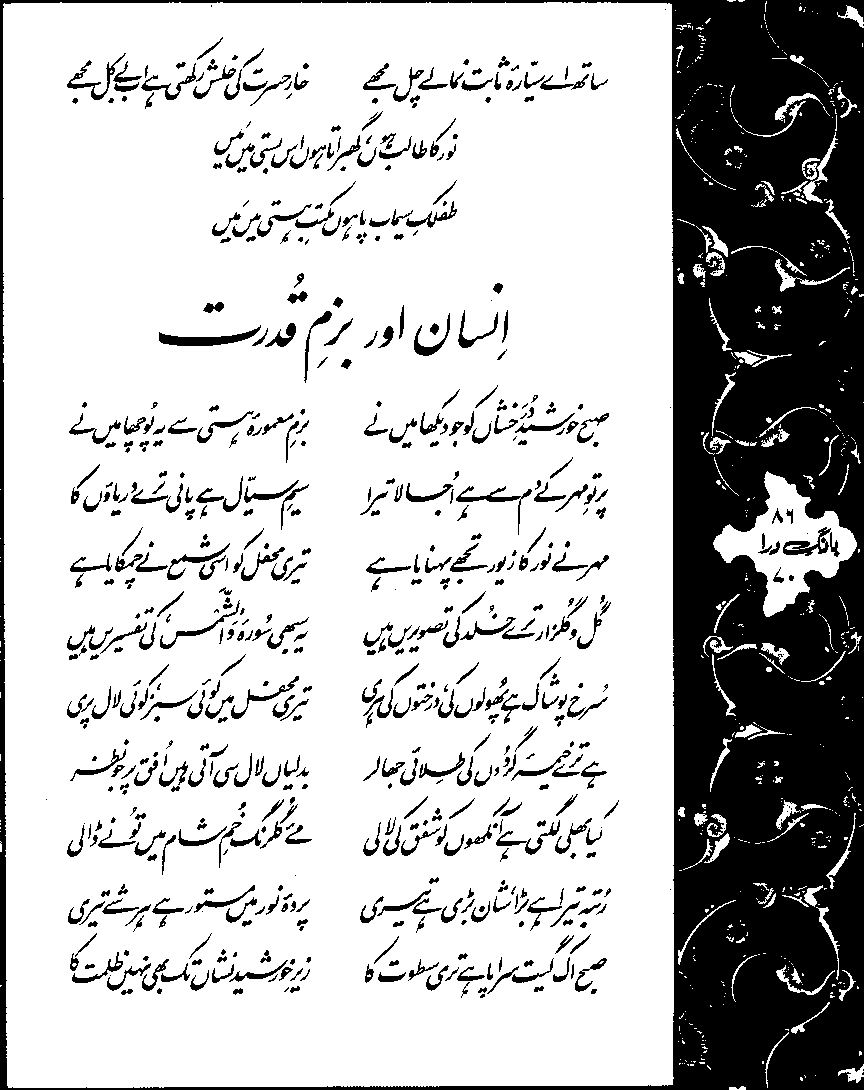 ساتھ اے سیّارۂ ثابت نما لے چل مجھے خارِ حسرت کی خلش رکھتی ہے اب بے کل مجھے
نور کا طالب ہوں، گھبراتا ہوں اس بستی میں مَیں
طفلکِ سیماب پا ہوں مکتبِ ہستی میں مَیں
اِنسان اور بزمِ قُدرت
صبح خورشیدِ دُرَخشاں کو جو دیکھا میں نے بزمِ معمورۂ ہستی سے یہ پُوچھا میں نے
پرتوِ مہر کے دَم سے ہے اُجالا تیرا سیمِ سیّال ہے پانی ترے دریاؤں کا
مہر نے نور کا زیور تجھے پہنایا ہے تیری محفل کو اسی شمع نے چمکایا ہے
گُل و گُلزار ترے خُلد کی تصویریں ہیں یہ سبھی سُورۂ وَالشَّمس کی تفسیریں ہیں
سُرخ پوشاک ہے پھُولوں کی، درختوں کی ہری تیری محفل میں کوئی سبز، کوئی لال پری
ہے ترے خیمۂ گردُوں کی طِلائی جھالر بدلیاں لال سی آتی ہیں اُفق پر جو نظر
کیا بھلی لگتی ہے آنکھوں کو شفَق کی لالی مئے گُلرنگ خُمِ شام میں تُو نے ڈالی
رُتبہ تیرا ہے بڑا، شان بڑی ہے تیری پردۂ نور میں مستور ہے ہر شے تیری
صبح اک گیت سراپا ہے تری سطوت کا زیرِ خورشید نشاں تک بھی نہیں ظلمت کا
۸۶
بانگِ درا
۷۰